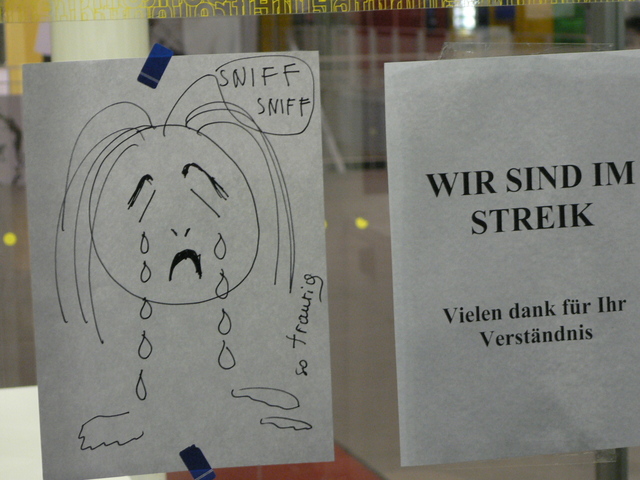 SNIFF
SNIFF
so traurig
WIR SIND IM
STREIK
Vielen dank für Ihr
Verständnis